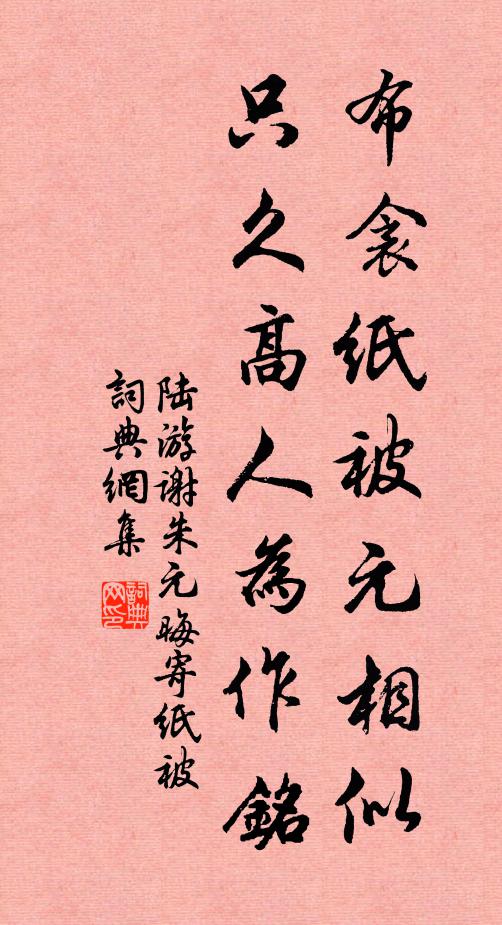 布衾纸被元相似
只久高人為作銘
陆游谢朱元晦寄纸被
詞典網集
詞典网印